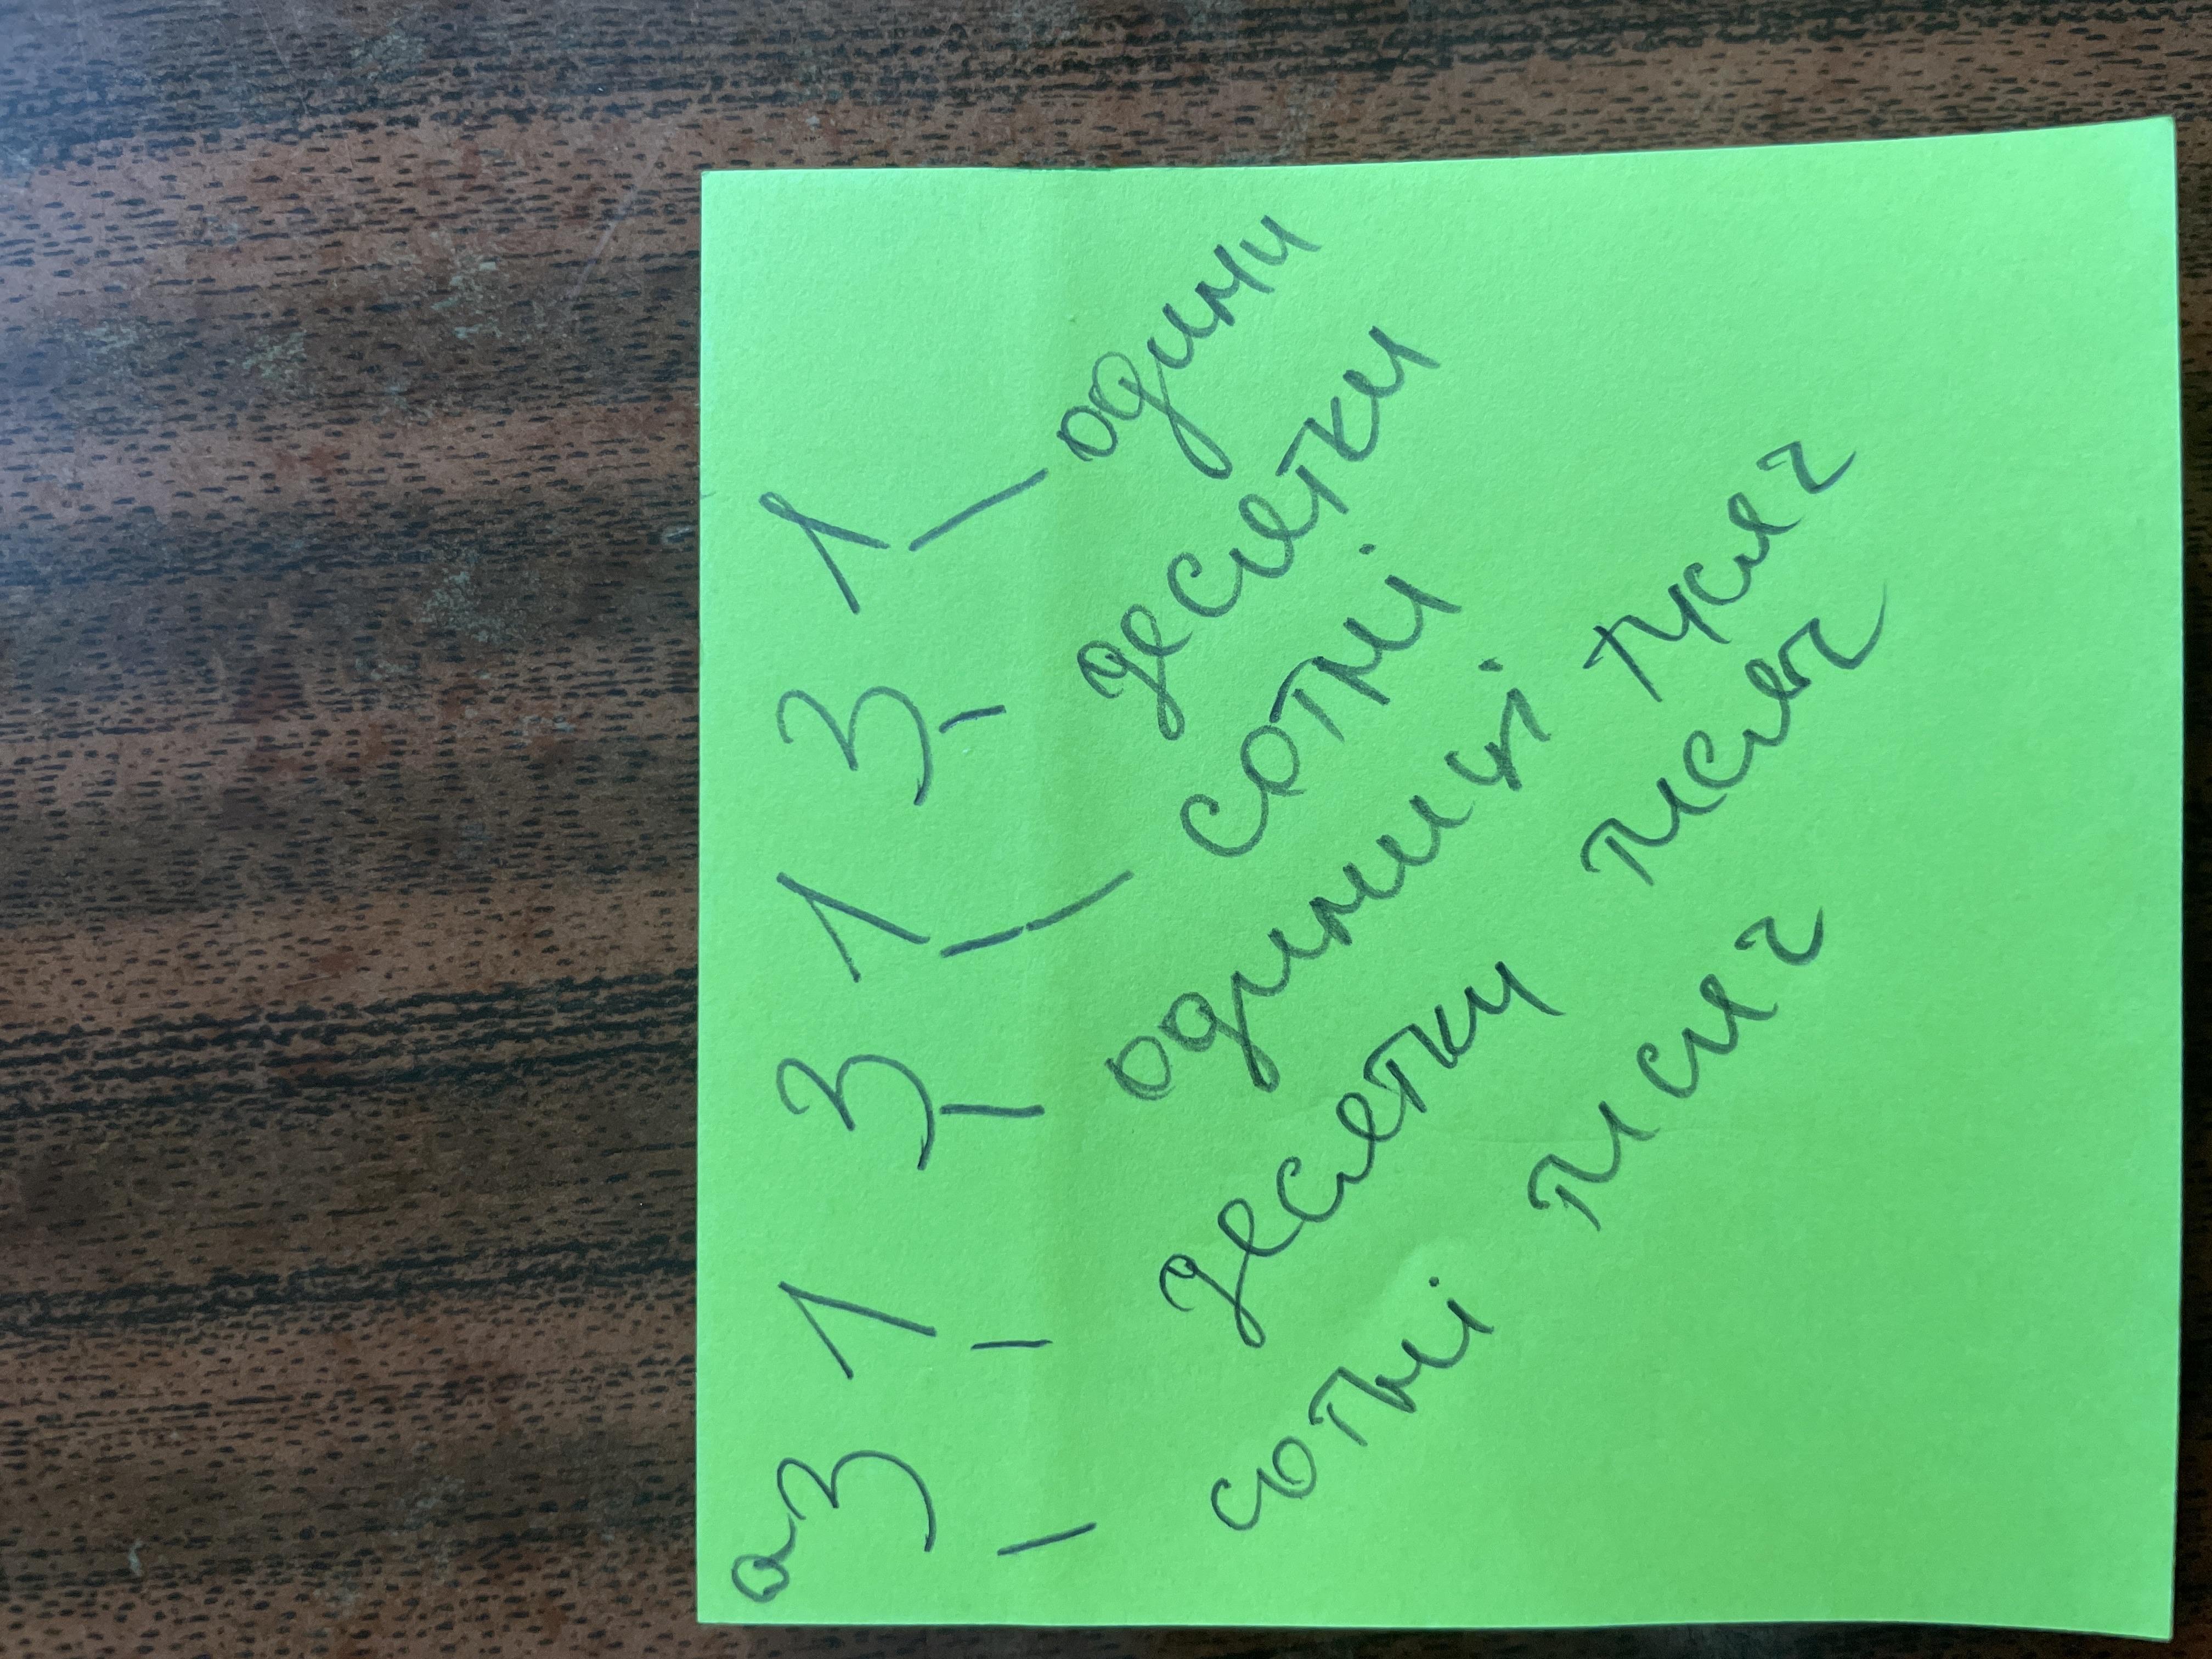 3 1 3 1 3 1
сотні тисяч
десятки тисяч
одиниці тисяч
сотні
десятки
одини